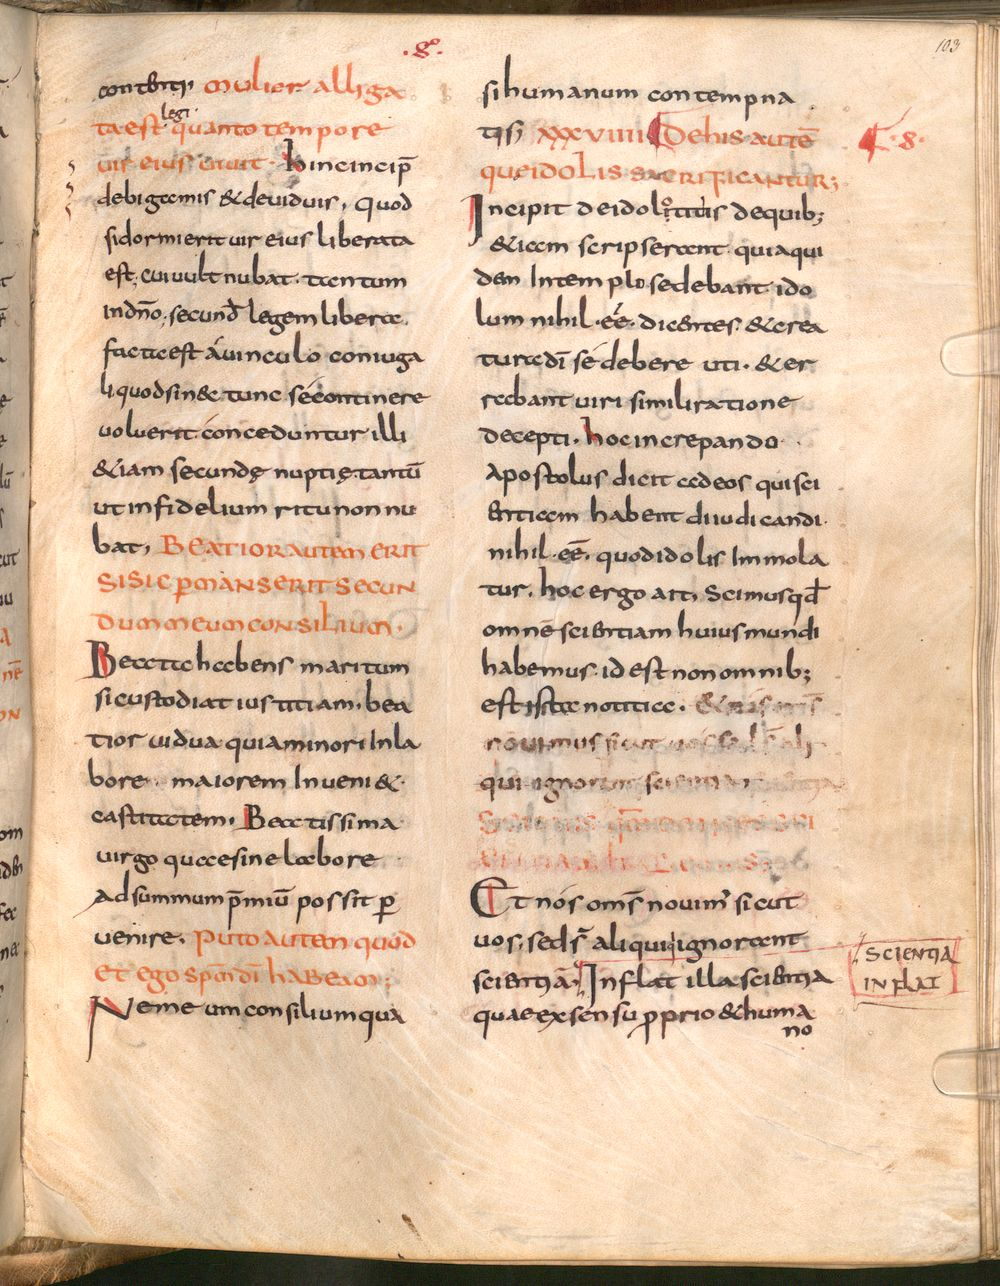 ·g·
103
contentis, mulier alliga
legi
ta est quanto tempore
uir eius uiuit· hincincip̄
debigamis &deuiduis, quod
sidormierit uir eius liberata
est, cui uult nubat· tantum
indn̄o, secund̄ legem liberta.
factaest áuinculo coniuga
li, quodsinec tunc sé continere
uoluerit· conceduntur illi
&iam secundę nuptię, tantū
ut infidelium ritu non nu
bat, Beatior autem erit
si sic p̄manserit secun
dum meum consilium·
Beata habens maritum
si custodiat iustitiam· bea
tior uidua· quia minori Inla
bore maiorem Inueni&
castitatem. Beatissima
uirgo quaesine labore
Adsummum p̄miū possit p̄
uenire. Puto autem quod
et ego sp̄m dī habeam;
Neme um consilium qua
si humanum contempna
tis, xxxviiii De his autē
quae idolis sacrificantur;
·8·
Incipit deidolatitis dequib;
&iam scripserant· quia qui
dam Intemplo sedebant· ido
lum nihil·eē· dicentes· &crea
turadī sé debere uti· &er
rabant uiri simili ratione
decepti· hoc increpando·
Apostolus dicit adeos qui sci
entiam habent diiudicandi·
nihil·eē· quodidolis Immola
tur· hoc ergo ait, Scimus qd̄
omnē scientiam huius mundi
habemus· id est non omnib;
est ista notitia·
nouimus sicut uos sed
qui ignorant scientiam
Et nós om̄s nouim' sicut
uos, sed s̄ aliqui ignorant
scientiā, Inflat illa scientia
SCIENTIA
INFLAT
quae exsensu p̄prio &huma
no